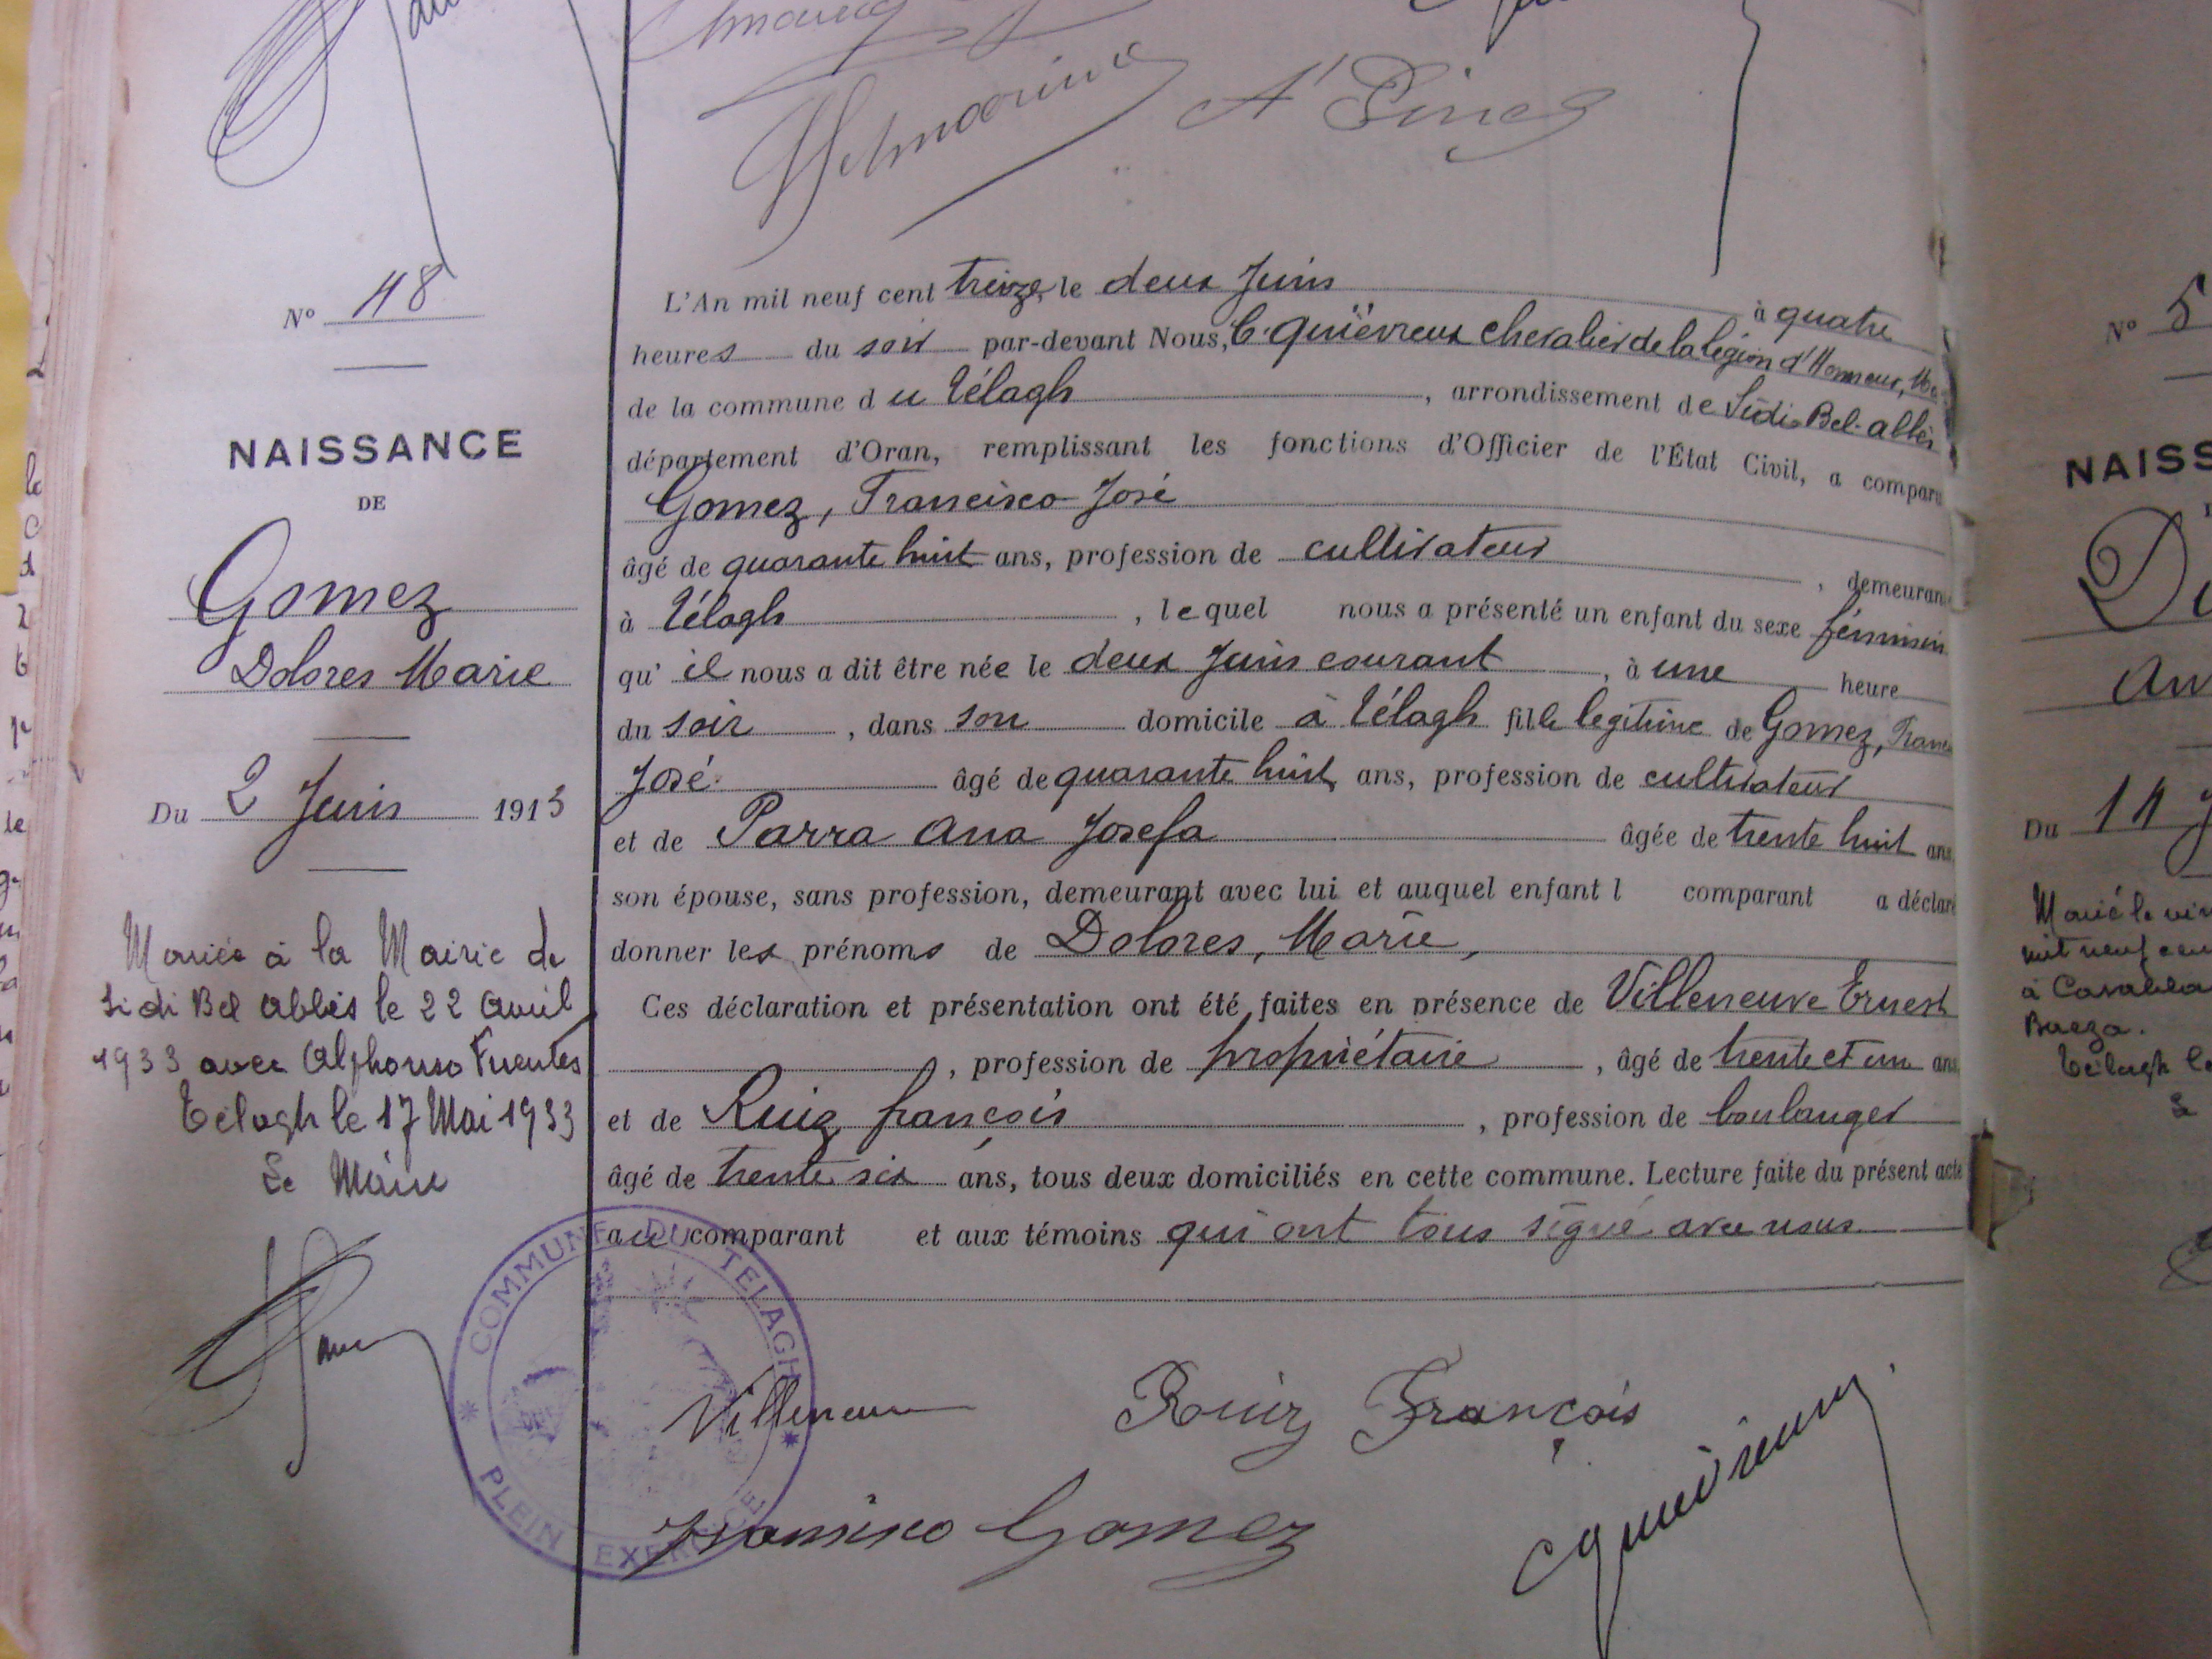 A Pines
Nº 48
NAISSANCE
DE
Gomez
Dolores Marie
Du 2 Juin 1913
Mariée à la Mairie de
Sidi Bel Abbès le 22 Avril
1933 avec Alphonso Fuentes
Télagh le 17 Mai 1933
Le Maire
L'An mil neuf cent treize, le deux Juin à quatre
heures du soir par-devant Nous, C. Quièvreux chevalier de la légion d'Honneur, Ma
de la commune du Télagh, arrondissement de Sidi-Bel-abbès
département d'Oran, remplissant les fonctions d'Officier de l'État Civil, a comparu
Gomez, Francisco José
âgé de quarante huit ans, profession de cultivateur, demeuran
à Télagh, lequel nous a présenté un enfant du sexe féminin
qu'il nous a dit être née le deux Juin courant, à une heure
du soir, dans son domicile à Télagh fille legitime de Gomez, Franc
José âgé de quarante huit ans, profession de cultivateur
et de Parra Ana Josefa âgée de trente huit ans
son épouse, sans profession, demeurant avec lui et auquel enfant l comparant a déclaré
donner les prénoms de Dolores, Marie,
Ces déclaration et présentation ont été faites en présence de Villeneuve Ernest
, profession de propriétaire, âgé de trente et un ans
et de Ruiz françois, profession de boulanger
âgé de trente six ans, tous deux domiciliés en cette commune. Lecture faite du présent acte
au comparant et aux témoins qui ont tous signé avec nous
COMMUNE DU TELAGH
PLEIN EXERCICE
Villeneuve
Rouiz François
Francisco Gomez
C Quièvreux
Nº 5
NAISS
D
Du 14 J
Marié le vin
mil neuf cen
à Casablan
Baeza.
Télagh le